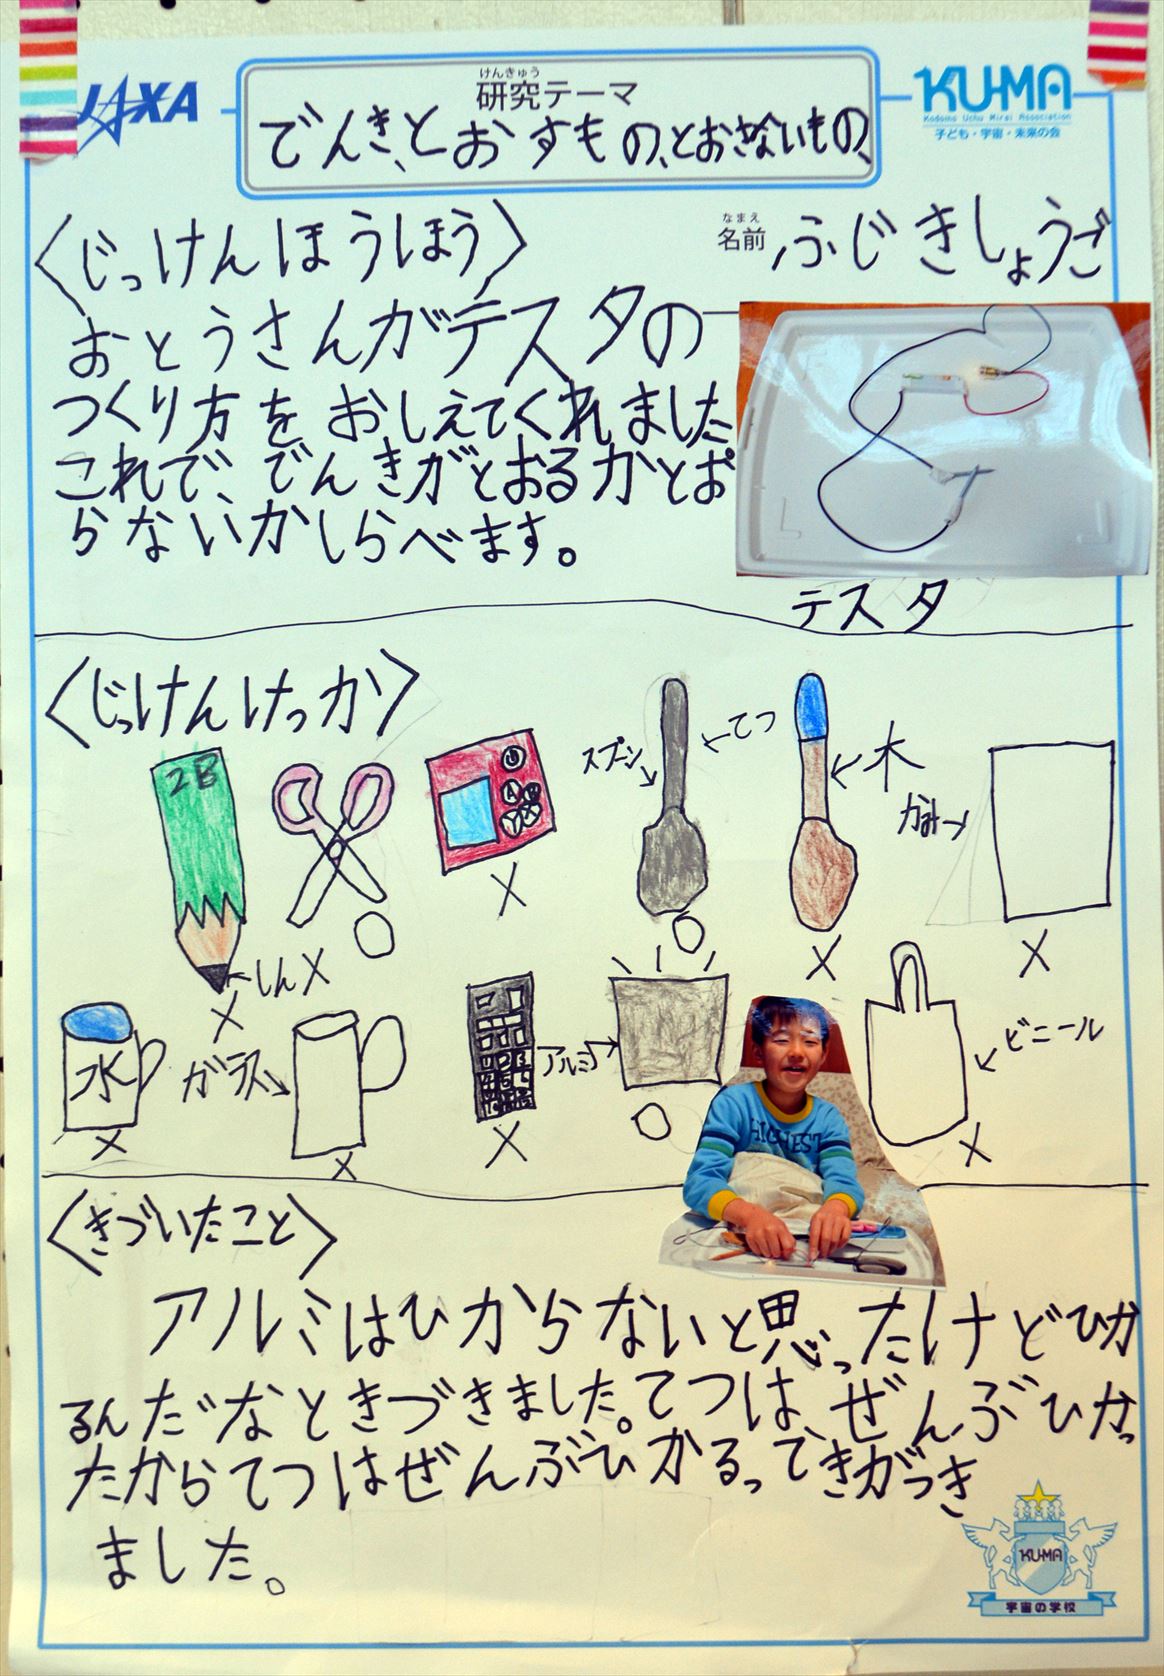 JAXA
けんきゅう
研究テーマ
でんき、とおすもの、とおさないもの、
KUMA
Kodomo Uchu Mirai Association
子ども・宇宙・未来の会
〈じっけんほうほう〉
なまえ
名前 ふじきしょうご
おとうさんがテスタの
つくり方をおしえてくれました
これで、でんきがとおるかとお
らないかしらべます。
テスタ
〈じっけんけっか〉
2B
スプーン
←てつ
←木
かみ→
A B
Y X
X
○
○
X
X
←しん X
X
水
ガラス→
アルミ→
←ビニール
X
X
X
○
X
〈きづいたこと〉
HIGHEST
アルミはひからないと思ったけどひか
るんだなときづきました。てつは、ぜんぶひかっ
たからてつはぜんぶひかるってきがつき
ました。
KUMA
宇宙の学校